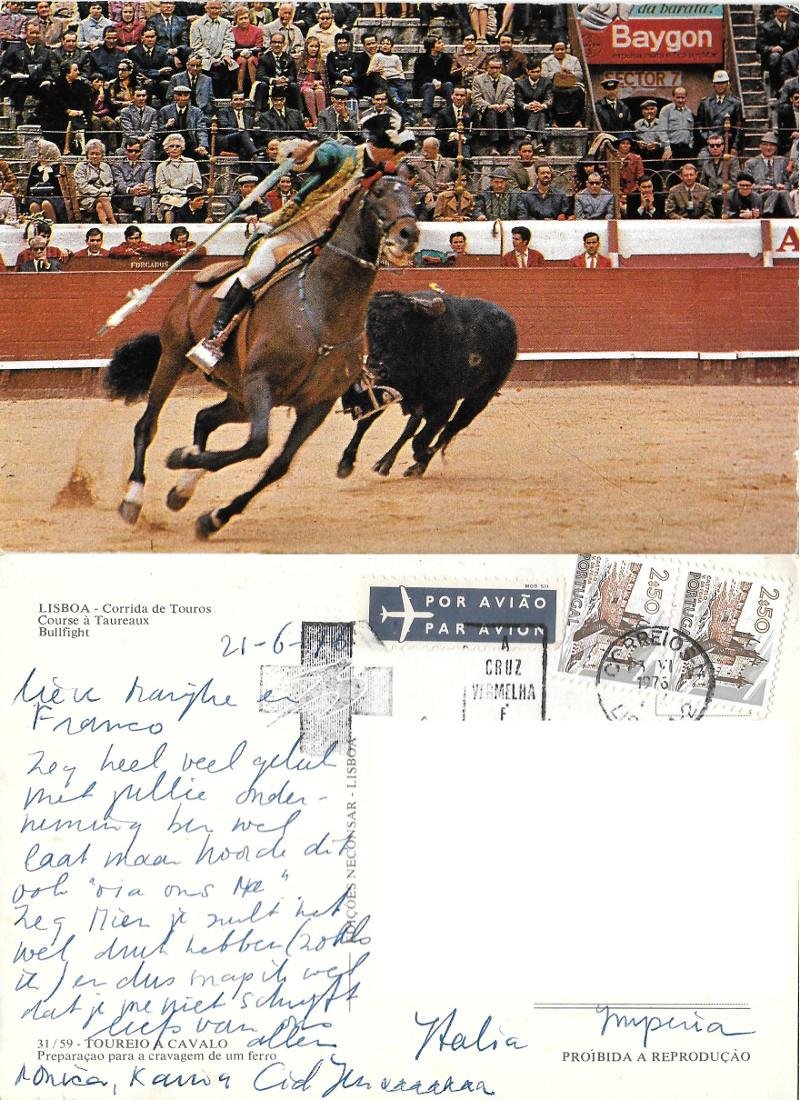 da barata?
Baygon
SECTOR 7
A
FORCADOS
LISBOA - Corrida de Touros
Course à Taureaux
Bullfight
MOD 511
POR AVIÃO
PAR AVION
CASTELO V. DA FEIRA
2$50
PORTUGAL
CASTELO V. DA FEIRA
2$50
PORTUGAL
CORREIOS
1976
A
CRUZ
VERMELHA
É
21-6-76
en
Franco
Zeg heel veel geluk
met jullie onder-
neming ben wel
laat maar hoorde dit
ook "via ons Ma".
Zeg Mien je zult het
wel druk hebben (zoals
ik) en dus snap ik wel
dat je me niet schrijft
liefs van ons
allen
Monica, Cid
EDIÇÕES NECONSAR - LISBOA
31/59 - TOUREIO A CAVALO
Preparaçao para a cravagem de um ferro
Italia Imperia
PROÍBIDA A REPRODUÇÃO